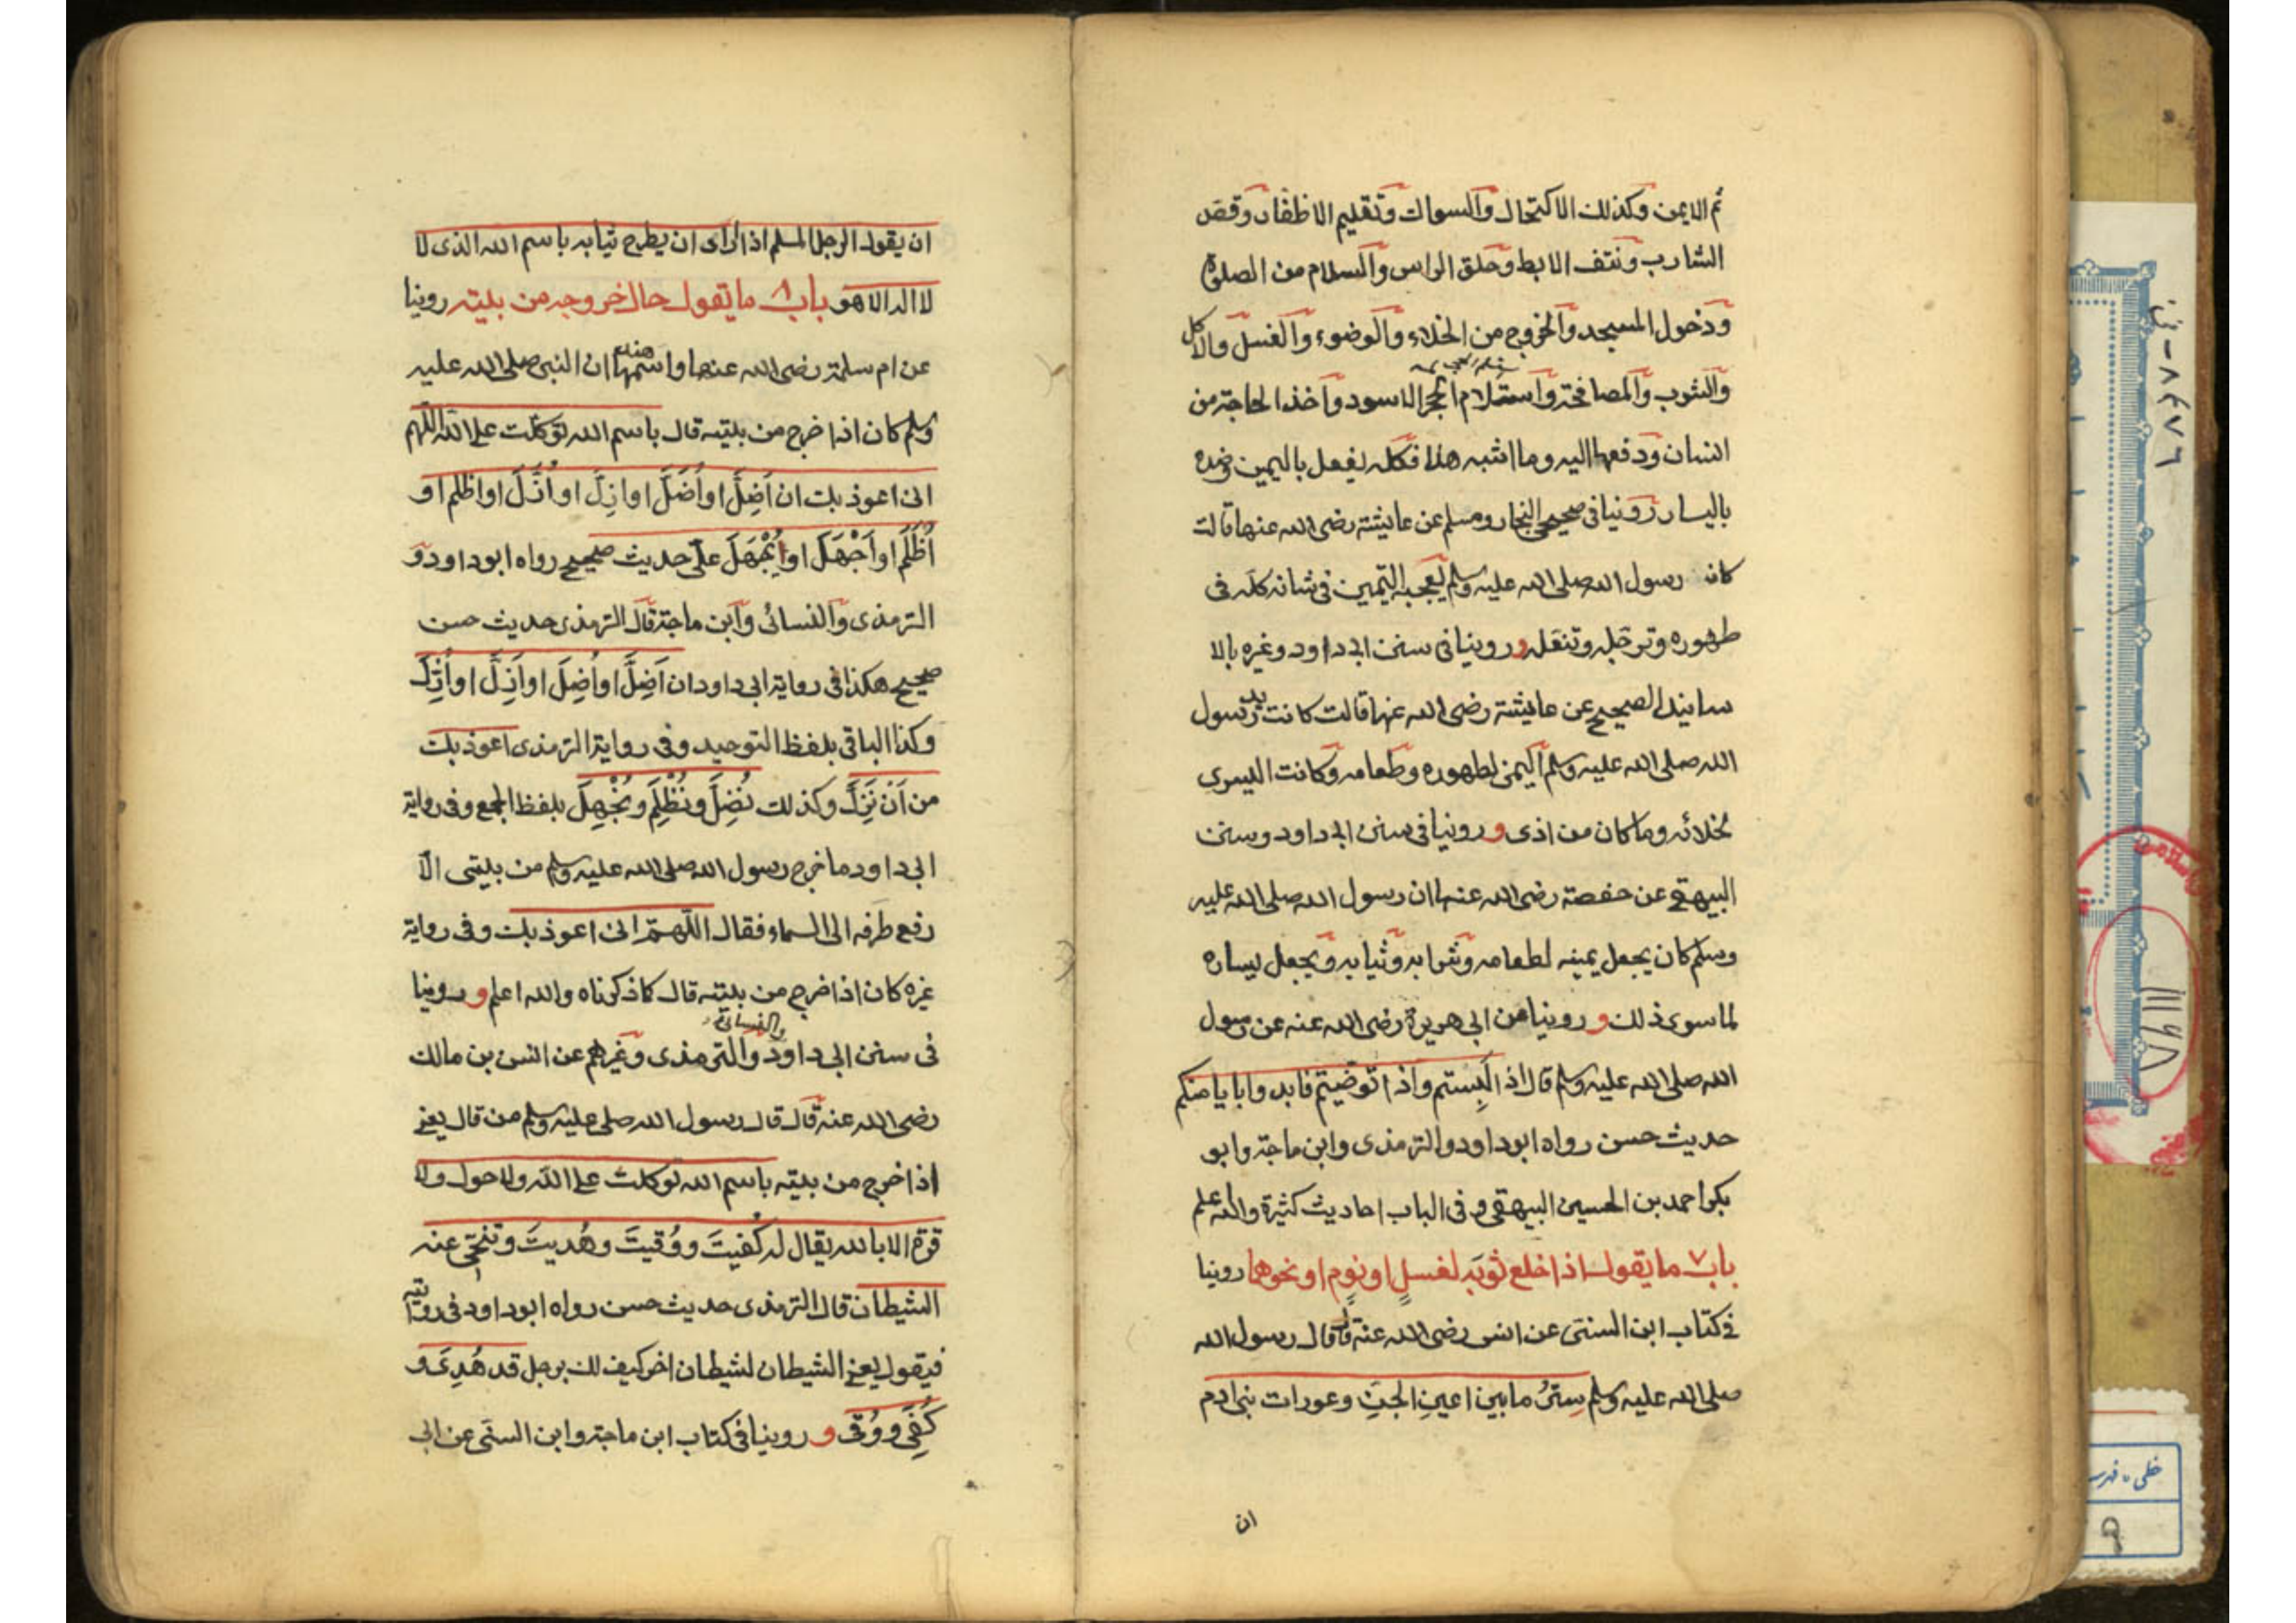 ثم الايمن وكذلك الاكتحال والسواك وتقليم الاظفار وقص
الشارب ونتف الابط وحلق الراس والسلام من الصلوة
ودخول المسجد والخروج من الخلاء والوضوء والغسل والاكل
والشوب والمصافحة واستلام الحجر الاسود واخذ الحاجة من
انسان ودفعها اليه وما اشبه هذا فكله يفعل باليمين وضده
باليسار روينا في صحيحي البخار ومسلم عن عايشة رضى الله عنها قالت
كان رسول الله صلى الله عليه وسلم يعجبه التيمين في شانه كله فى
طهوره وترجله وتنعله و روينا فى سنن ابى داود وغيره بالا
سانيد الصحيح عن عايشة رضى الله عنها قالت كانت يد رسول
الله صلى الله عليه وسلم اليمنى لطهوره وطعامه وكانت اليسرى
لخلائه وما كان من اذى و روينا فى سنن ابى داود وسنن
البيهقي عن حفصة رضى الله عنها ان رسول الله صلى الله عليه
وسلم كان يجعل يمينه لطعامه وشرابه وثيابه ويجعل يساره
لما سوى ذلك و روينا من ابى هريرة رضى الله عنه عن رسول
الله صلى الله عليه وسلم قال اذا لبستم واذا توضيتم فابدوا بايامنكم
حديث حسن رواه ابو داود والترمذى وابن ماجة وابو
بكر احمد بن الحسين البيهقى و فى الباب احاديث كثيرة والله اعلم
باب ٧ ما يقول اذا خلع ثوبه لغسلٍ او نومٍ او نحوهما روينا
في كتاب ابن السنى عن انس رضى الله عنه قال قال رسول الله
صلى الله عليه وسلم ستر ما بين اعين الجن وعورات بنى ادم
ان
ان يقول الرجل المسلم اذا اراى ان يطرح ثيابه باسم الله الذى لا
لا اله الا هو باب ٨ ما تقول حال خروجه من بيته روينا
عن ام سلمة رضى الله عنها واسمها هند ان النبى صلى الله عليه
وسلم كان اذا خرج من بيته قال باسم الله توكلت على الله اللّهم
انى اعوذ بك ان اَضِلَّ او اُضَلَّ او ازِلَّ او اُزَلَّ او اظلم او
اُظْلَم او اَجْهَلَ او يُجْهَلَ علىّ حديث صحيح رواه ابو داود و
الترمذى والنسائى وابن ماجة قال الترمذى حديث حسن
صحيح هكذا فى رواية ابى داود ان اَضِلَّ او اُضِلَّ او اَزِلَّ او اُزِلَّ
وكذا الباقى بلفظ التوحيد وفى رواية الترمذى اعوذ بك
من اَنْ نَزِلَّ وكذلك نُضِلَّ ونُظْلِم ونُجْهِلَ بلفظ الجمع وفى رواية
ابى داود ما خرج رسول الله صلى الله عليه وسلم من بيتى الّا
رفع طَرفه الى السماء فقال اللّهمّ انى اعوذ بك وفى رواية
غيره كان اذا خرج من بيته قال كما ذكرناه والله اعلم و روينا
فى سنن ابى داود والترمذى والنسائى وغيرهم عن انس بن مالك
رضى الله عنه قال قال رسول الله صلى عليه وسلم من قال يعنى
اذا خرج من بيته باسم الله توكلت على الله ولا حول ولا
قوة الا بالله يقال له كُفيتَ ووُقيتَ وهُديتَ وتنحّى عنه
الشيطان قال الترمذى حديث حسن رواه ابو داود فى روايته
فيقول يعنى الشيطان لشيطان اخر كيف لك برجل قد هُدِىَ و
كُفِىَ ووُقى و روينا فى كتاب ابن ماجة وابن السنى عن ابى
٨٤٧٦ - ف
١١١٦٨
خطى - فهرس